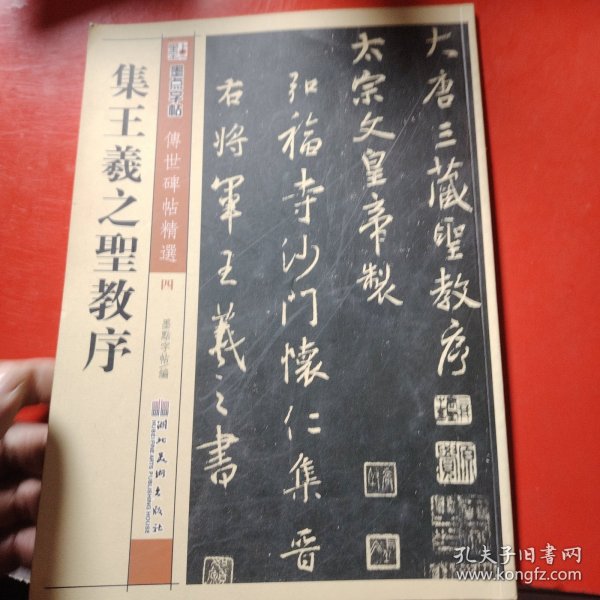 集王羲之聖教序
墨点字帖
傳世碑帖精選
四
墨點字帖編
湖北美術出版社
HUBEI FINE ARTS PUBLISHING HOUSE
大唐三藏聖教序
太宗文皇帝製
弘福寺沙門懷仁集晉
右將軍王羲之書
孔夫子旧书网
www.kongfz.com